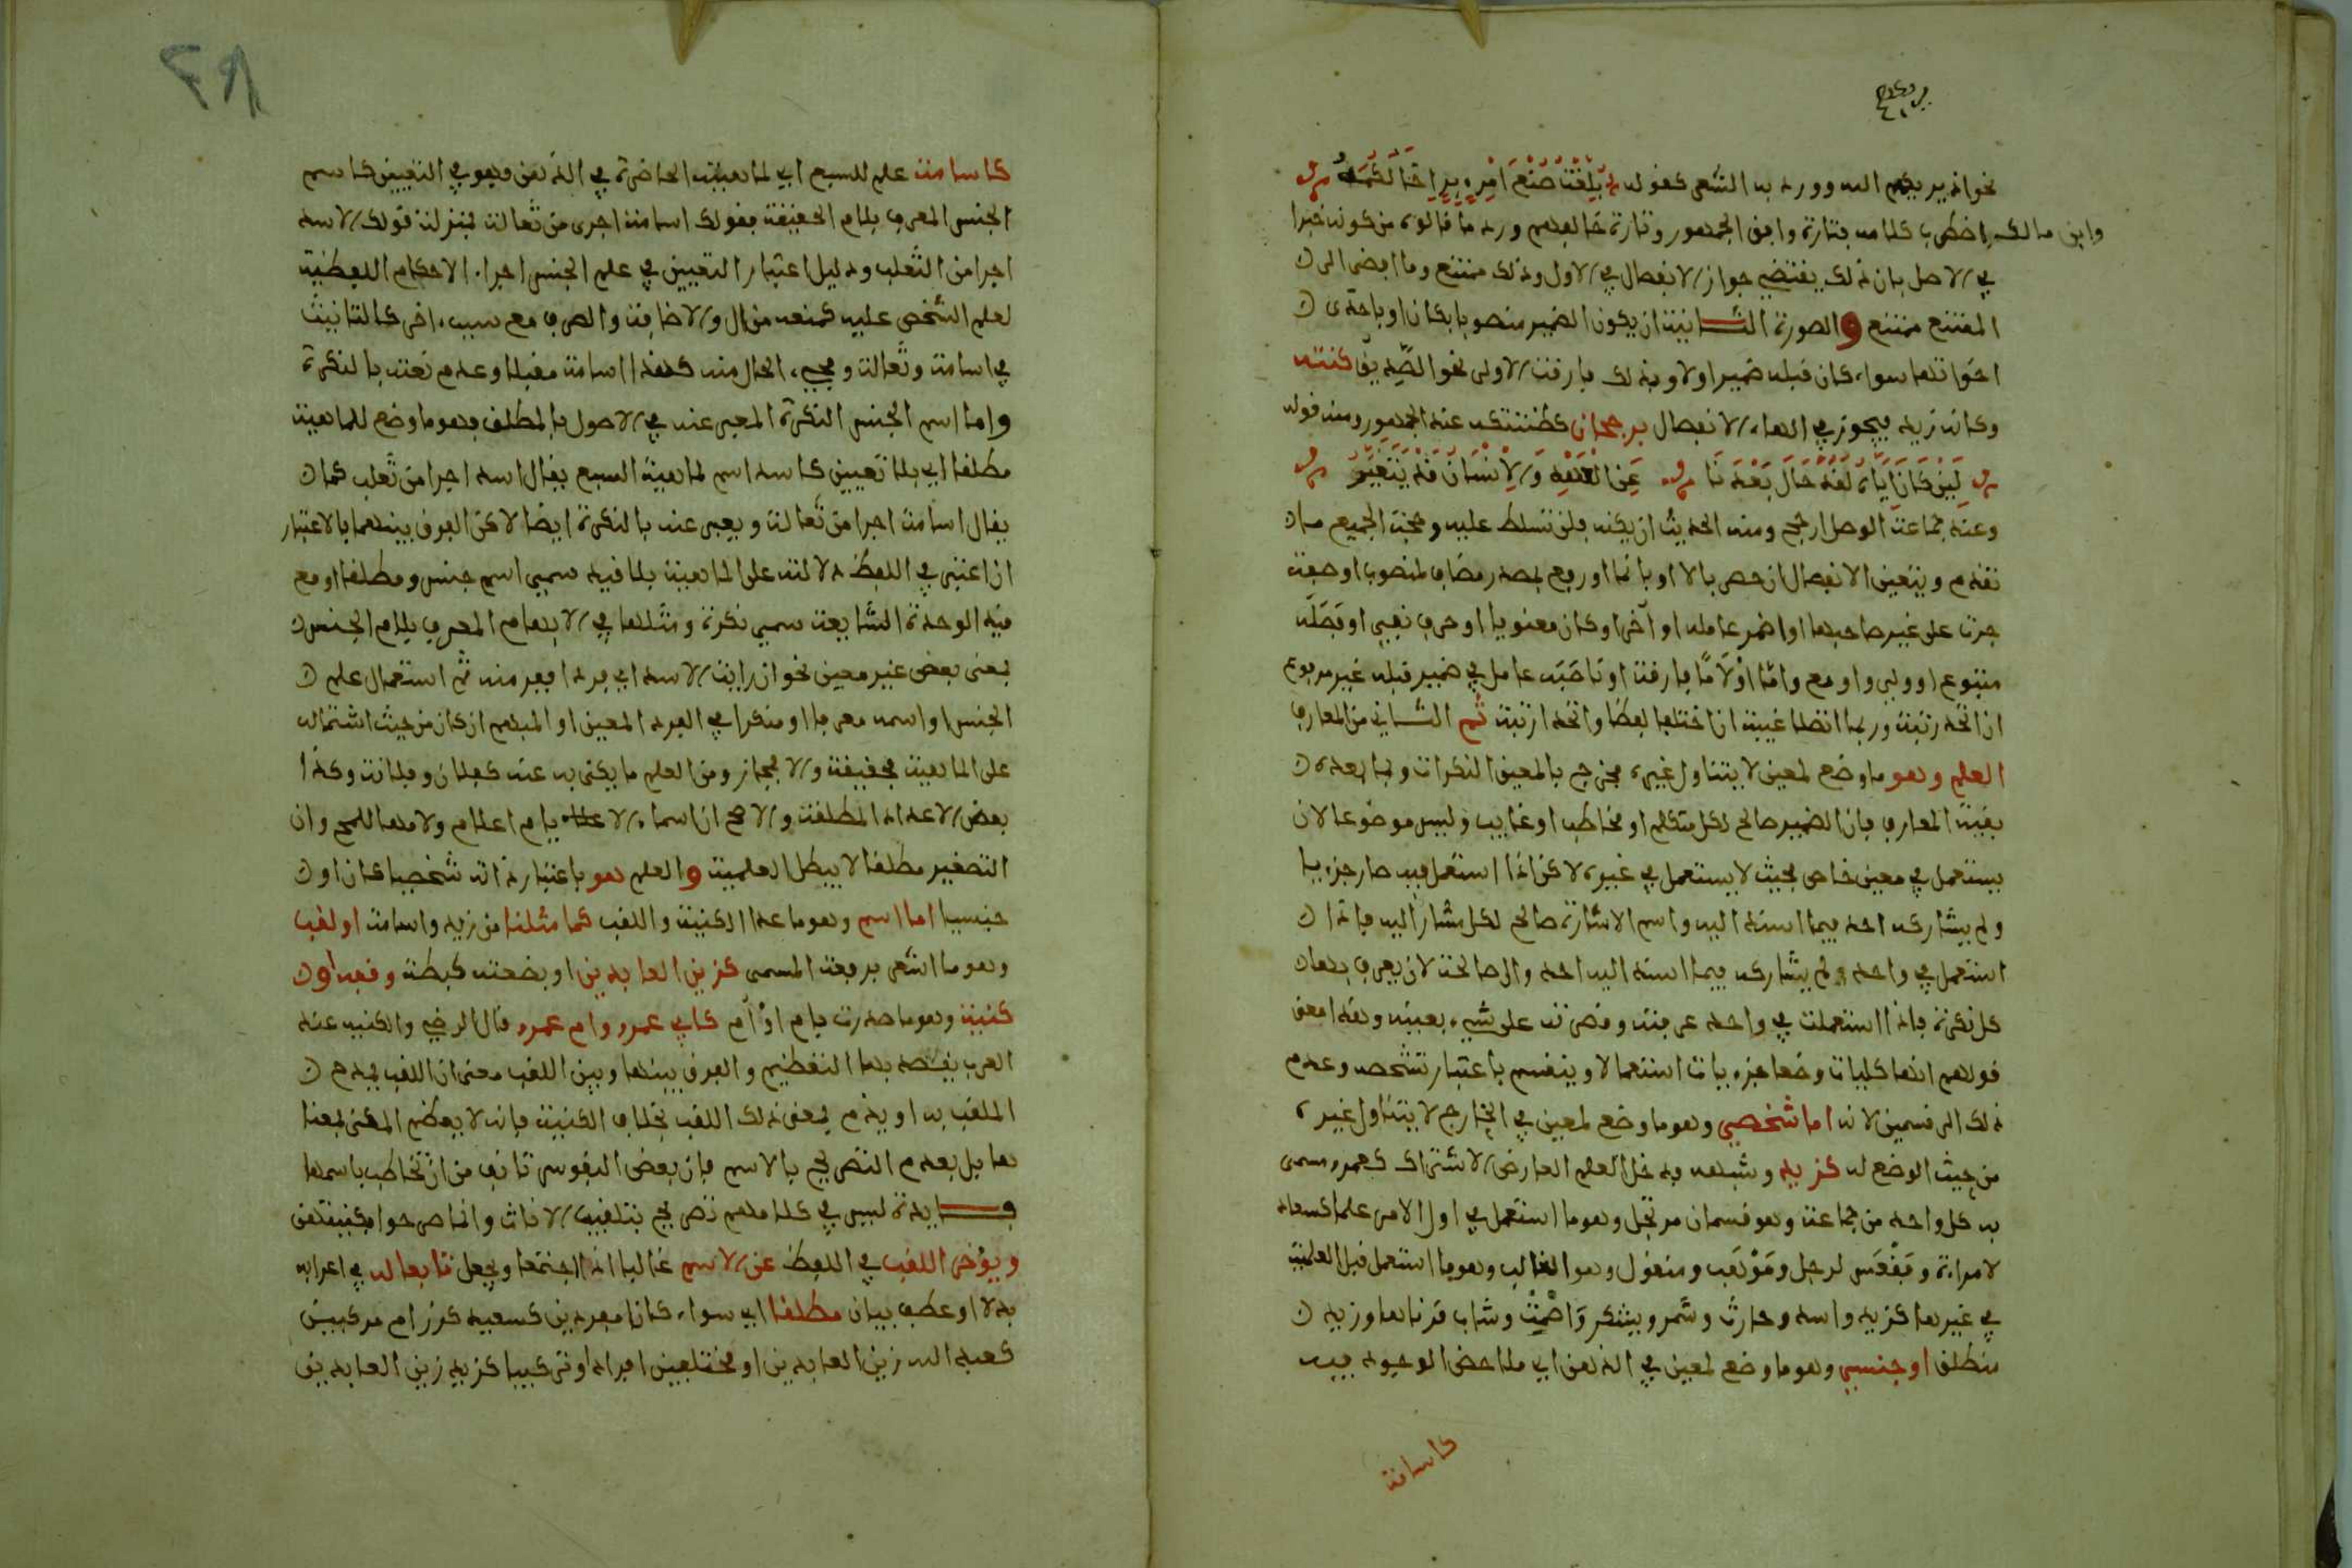 نحو اذ يريكهم الله وورد به الشعر كقوله بلغت صنع امرء بر اخالكه
وابن مالك اضطرب كلامه فتارة وافق الجمهور وتارة خالفهم ورد ما قالوه من كونه خبرا
في الاصل بان ذلك يقتضي جواز الانفصال في الاول وذلك ممتنع وما افضى الى
الممتنع ممتنع والصورة الثانية ان يكون الضمير منصوبا بكان او باحدى
اخواتها سواء كان قبله ضمير اولا وبذلك فارقت الاولى نحو الصديق كنته
وكانه زيد فيجوز في الهاء الانفصال برجحان كظننتكه عند الجمهور ومنه قوله
لين كان اياه لقد حال بعدنا عن العهد والانسان قد يتغير
وعند جماعة الوصل ارجح ومنه الحديث ان يكنه فلن تسلط عليه وحجة الجميع
تقدم ويتعين الانفصال ان حصر بالا او بانما او رفع بمصدر مضاف لمنصوب او صفة
جرت على غير صاحبها او اضمر عامله او آخر او كان معنويا او حرف نفي او فصله
متبوع او ولي واو مع واما او لاما فارقة او ناصبه عامل في ضمير قبله غير مرفوع
ان اتحد رتبة وربما اتصلا غيبة ان اختلفا لفظا واتحدا رتبة ثم الثاني من المعارف
العلم وهو ما وضع لمعين لا يتناول غيره فخرج بالمعين النكرات وبما بعده
بقية المعارف فان الضمير صالح لكل متكلم او مخاطب او غايب وليس موضوعا لان
يستعمل في معين خاص بحيث لا يستعمل في غيره لاكن اذا استعمل فيه صار جزءيا
ولم يشاركه احد فيما اسند اليه واسم الاشارة صالح لكل مشار اليه فاذا
استعمل في واحد ولم يشاركه فيما اسند اليه احد وال صالحة لان يعرف بها
كل نكرة فاذا استعملت في واحد عرفته وقصرته على شيء بعينه وهذا معنى
قولهم انها كليات وضعا جزءيات استعمالا وينقسم باعتبار تشخصه وعدم
ذلك الى قسمين لانه اما شخصي وهو ما وضع لمعين في الخارج لا يتناول غيره
من حيث الوضع له كزيد وشبهه فدخل العلم العارض الاشتراك كعمرو مسمى
به كل واحد من جماعة وهو قسمان مرتجل وهو ما استعمل في اول الامر علما كسعاد
لامراة وفقعس لرجل وموهب ومنقول وهو الغالب وهو ما استعمل قبل العلمية
في غيرها كزيد واسد وحارث وشمر ويشكر واصمت وشاب قرناها وزيد
منطلق او جنسي وهو ما وضع لمعين في الذهن اي ملاحض الوجود فيه
كاسامة
كاسامة علم للسبع اي لماهيته الحاضرة في الذهن وهو في التعيين كاسم
الجنس المعرف بلام الحقيقة فقولك اسامة اجرى من ثعالة بمنزلة قولك الاسد
اجرا من الثعلب ودليل اعتبار التعيين في علم الجنس اجراء الاحكام اللفظية
لعلم الشخص عليه كمنعه من ال والاضافة والصرف مع سبب اخر كالتانيث
في اسامة وثعالة ومجيء الحال منه كهذا اسامة مقبلا وعدم نعته بالنكرة
واما اسم الجنس النكرة المعبر عنه في الاصول بالمطلق وهو ما وضع للماهية
مطلقا اي بلا تعيين كاسد اسم لماهية السبع يقال اسد اجرا من ثعلب كما
يقال اسامة اجرا من ثعالة ويعبر عنه بالنكرة ايضا لاكن الفرق بينهما بالاعتبار
ان اعتبر في اللفظ دلالته على الماهية بلا قيد سمي اسم جنس ومطلقا او مع
قيد الوحدة الشايعة سمي نكرة ومثلها في الابهام المعرف بلام الجنس
بمعنى بعض غير معين نحو ان رايت الاسد اي فردا ففر منه ثم استعمال علم
الجنس او اسمه معرفا او منكرا في الفرد المعين او المبهم ان كان من حيث اشتماله
على الماهية فحقيقة والا فمجاز ومن العلم ما يكنى به عنه كفلان وفلانة وكذا
بعض الاعداد المطلقة والاصح ان اسماء الايام اعلام ولامها للمح وان
التصغير مطلقا لا يبطل العلمية والعلم هو باعتبار ذاته شخصيا كان او
جنسيا اما اسم وهو ما عدا الكنية واللقب كما مثلنا من زيد واسامة او لقب
وهو ما اشعر برفعة المسمى كزين العابدين او بضعته كبطة وقفه او
كنية وهو ما صدرت باب او ام كابي عمرو وام عمرو قال الرضي والكنية عند
العرب يقصد بها التعظيم والفرق بينها وبين اللقب معنى ان اللقب يمدح
الملقب به او يذم بمعنى ذلك اللقب بخلاف الكنية فانه لا يعظم المكنى بمعنا
ها بل بعدم التصريح بالاسم فان بعض النفوس تانف من ان تخاطب باسمها
فايدة ليس في كلامهم تصريح بتلقيب الاناث وانما صرحوا بكنيتهن
ويؤخر اللقب في اللفظ عن الاسم غالبا اذا اجتمعا ويجعل تابعا له في اعرابه
بدلا او عطف بيان مطلقا اي سواء كانا مفردين كسعيد كرز ام مركبين
كعبد الله زين العابدين او مختلفين افرادا وتركيبا كزيد زين العابدين